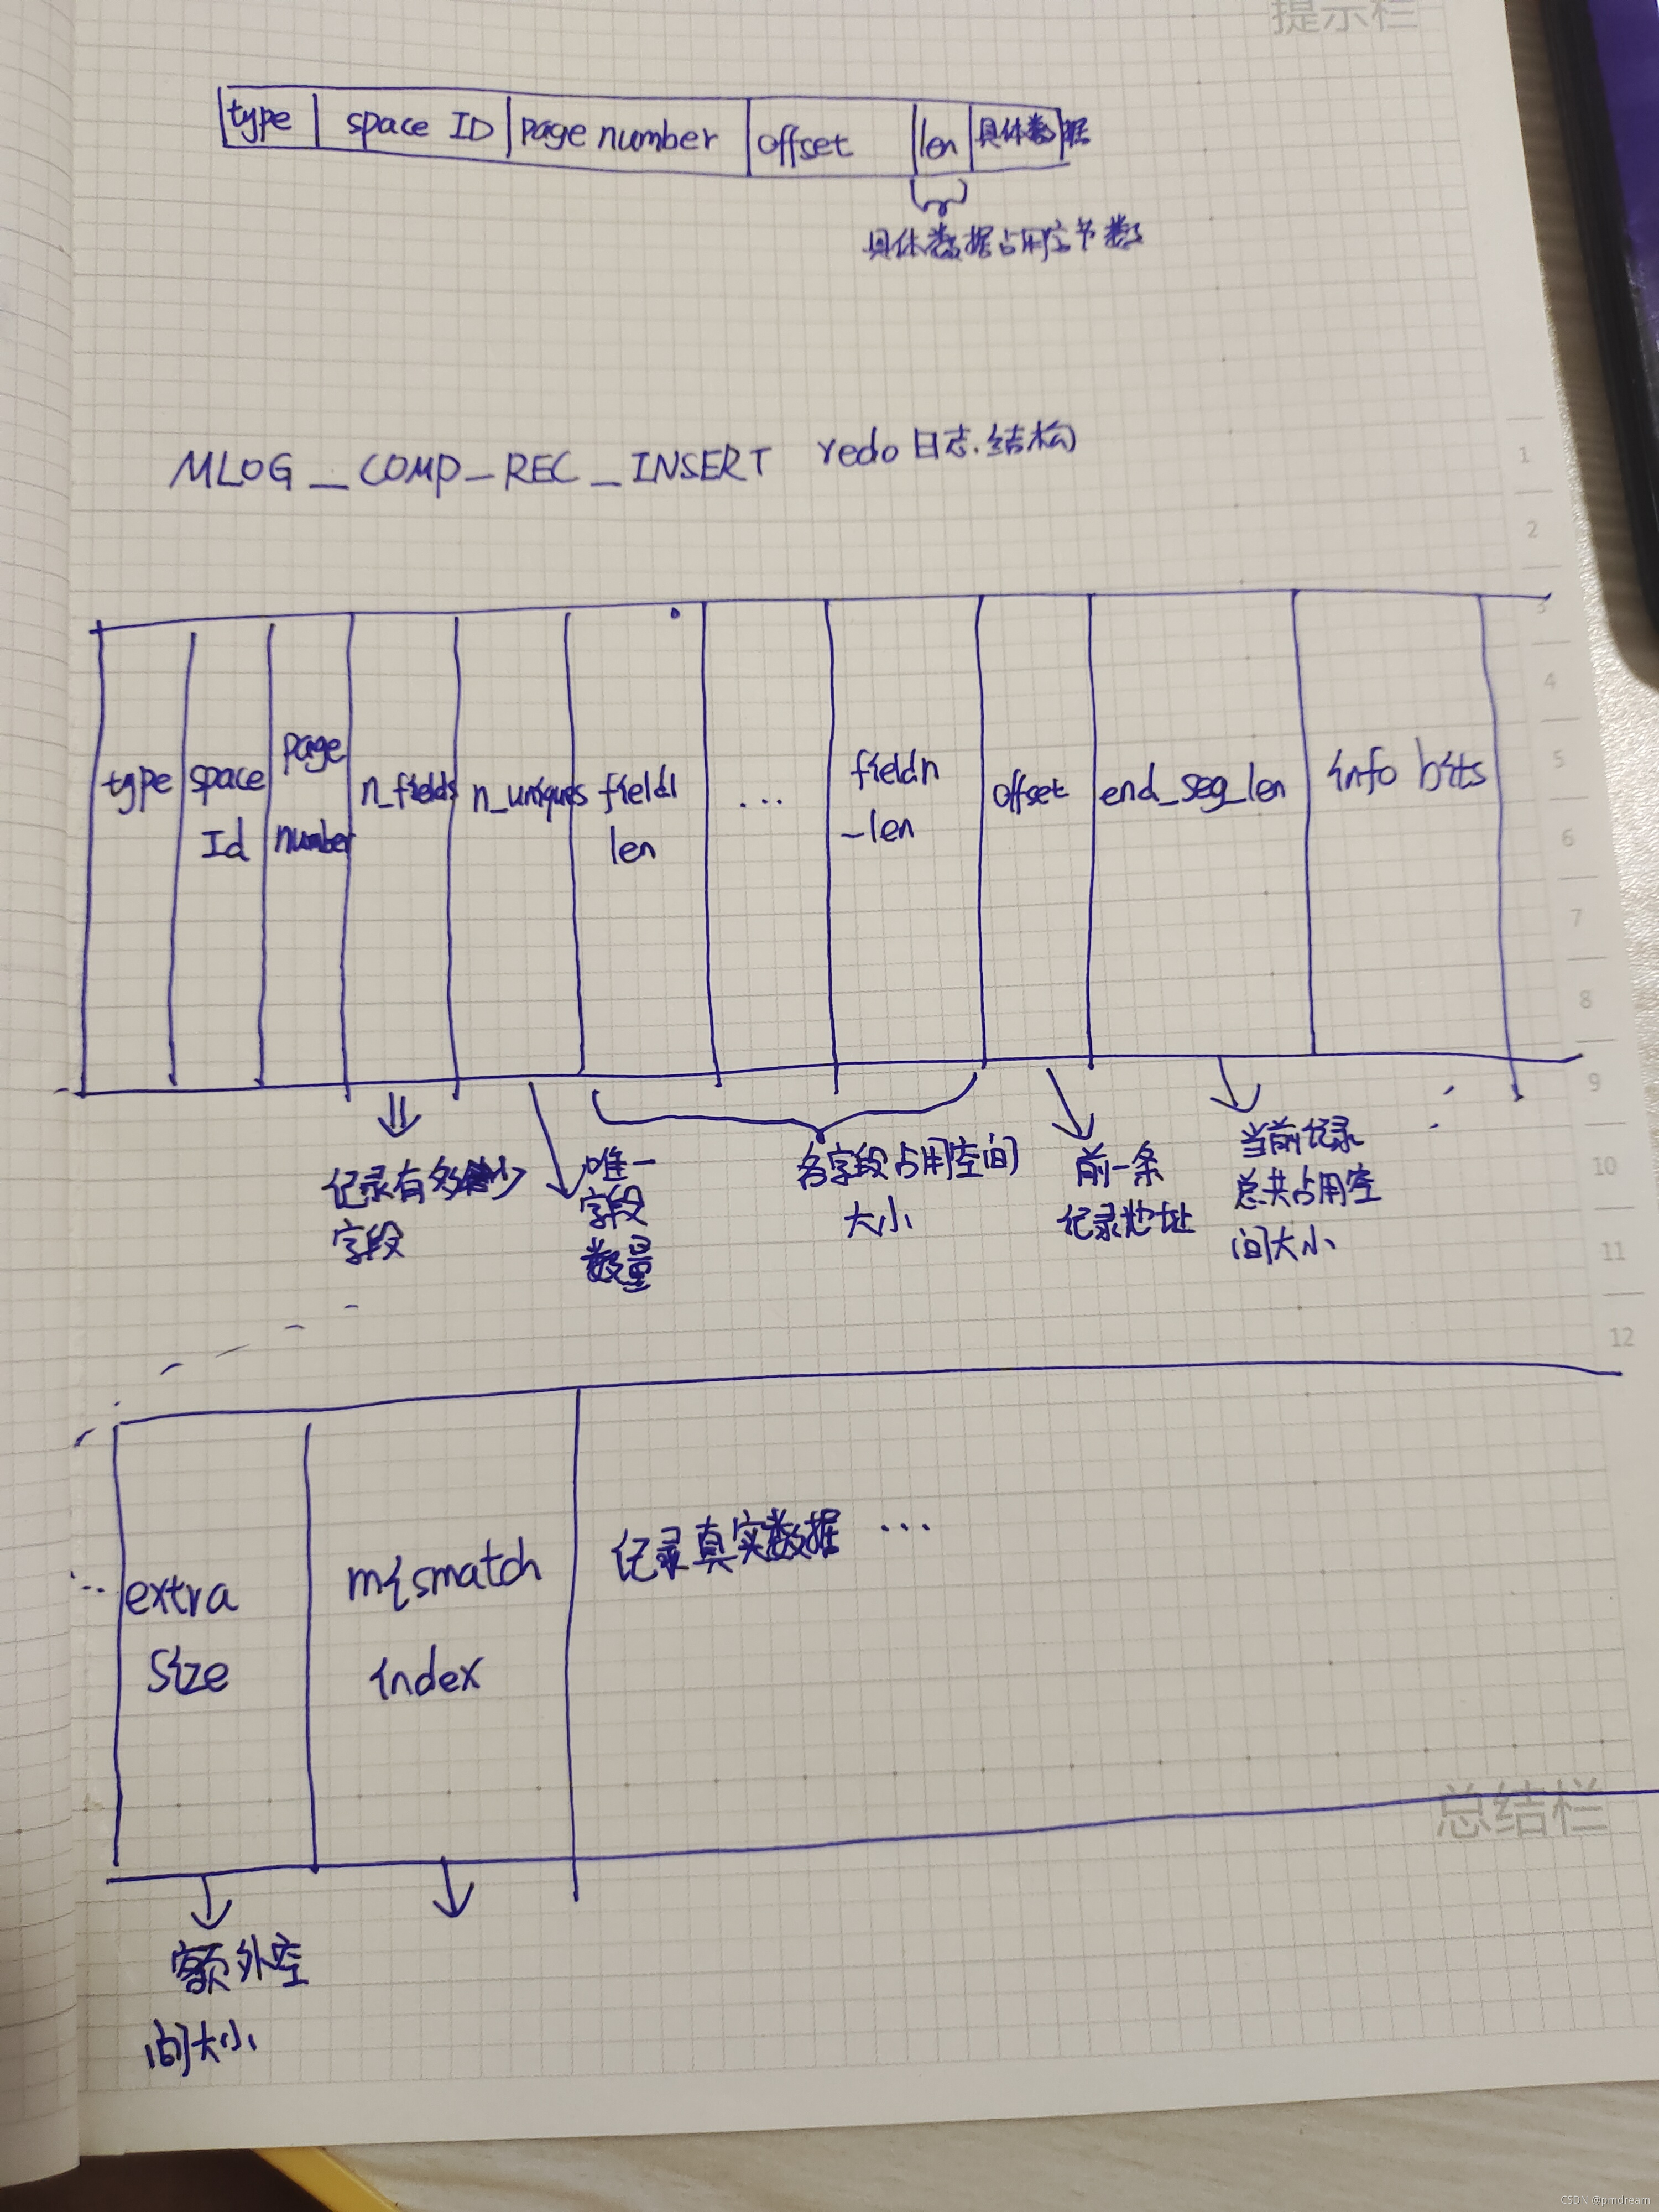 提示栏
type space ID page number offset len 具体数据
具体数据占用字节数
MLOG_COMP_REC_INSERT redo日志结构
1
2
3
4
5
6
7
8
9
10
11
12
type
space
Id
page
number
n_fields
n_uniques
field1
len
...
fieldn
_len
offset
end_seg_len
info bits
记录有多少
字段
唯一
字段
数量
各字段占用空间
大小
前一条
记录地址
当前记录
总共占用空
间大小
...
extra
size
mismatch
index
记录真实数据 ...
总结栏
额外空
间大小
CSDN @pmdream